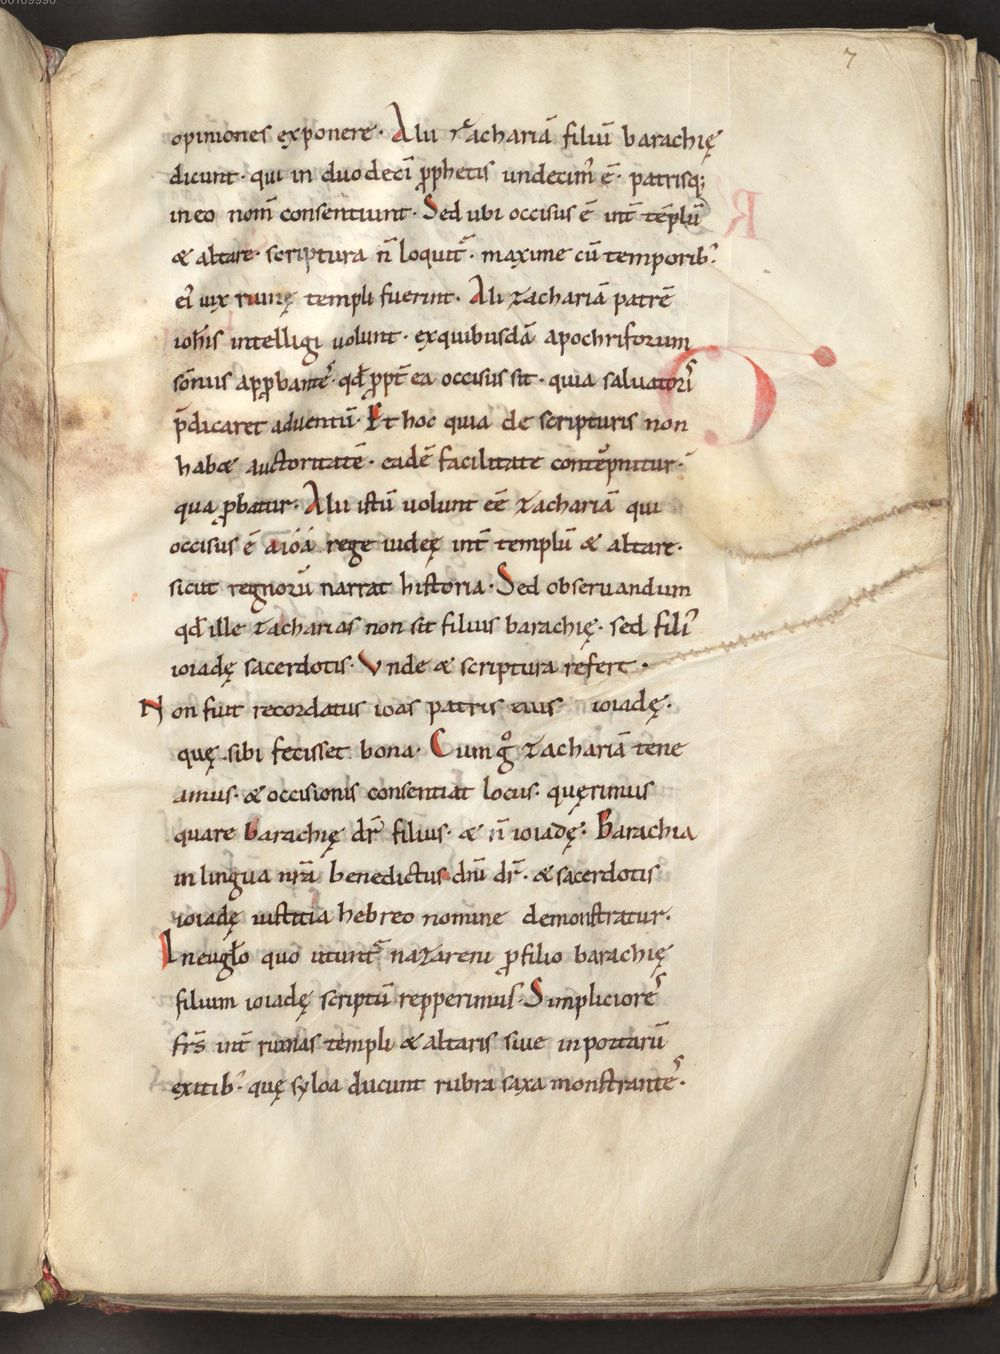 00109996
7
opiniones exponere. Alii zachariā filiū barachię
dicunt. qui in duodecī ꝓphetis undecim᾽ ē. patrisq;
in eo nom̄ consentiunt. Sed ubi occisus ē int̄ tēplū
& altare. scriptura n̄ loquit᾽. maxime cū temporib᾽
ei᾽ uix ruinę templi fuerint. Alii zachariā patrē
ioh̄is intelligi uolunt. exquibusdā apochriforum
sōniis apꝓbantes. qđ ꝓpt̄ ea occisus sit. quia saluatoris
p̄dicaret aduentū. Et hoc quia de scripturis non
hab& auctoritatē. eadē facilitate contēpnitur.
qua ꝓbatur. Alii istū uolunt eē zachariā qui
occisus ē aióá rege iudeę int̄ templū & altare.
sicut regnorū narrat historia. Sed obseruandum
qđ ille zacharias non sit filius barachię. sed fili᾽
ioiadę sacerdotis. Vnde & scriptura refert.
Non fuit recordatus ioas patris eius ioiadę.
quę sibi fecisset bona. Cum gͦ zachariā tene
amus. & occisionis consentiat locus. quęrimus
quare barachię dr̄ filius. & n̄ ioiadę. Barachia
in lingua nr̄a benedictus dn̄i dr̄. & sacerdotis
ioiadę iustitia hebreo nomine demonstratur.
In eugło quo utunt᾽ nazareni ꝓ filio barachię
filium ioiadę scriptū repperimus. Simpliciores
fr̄s int̄ ruinas templi & altaris siue in portarū
exitib᾽. quę syloa ducunt rubra saxa monstrantes.